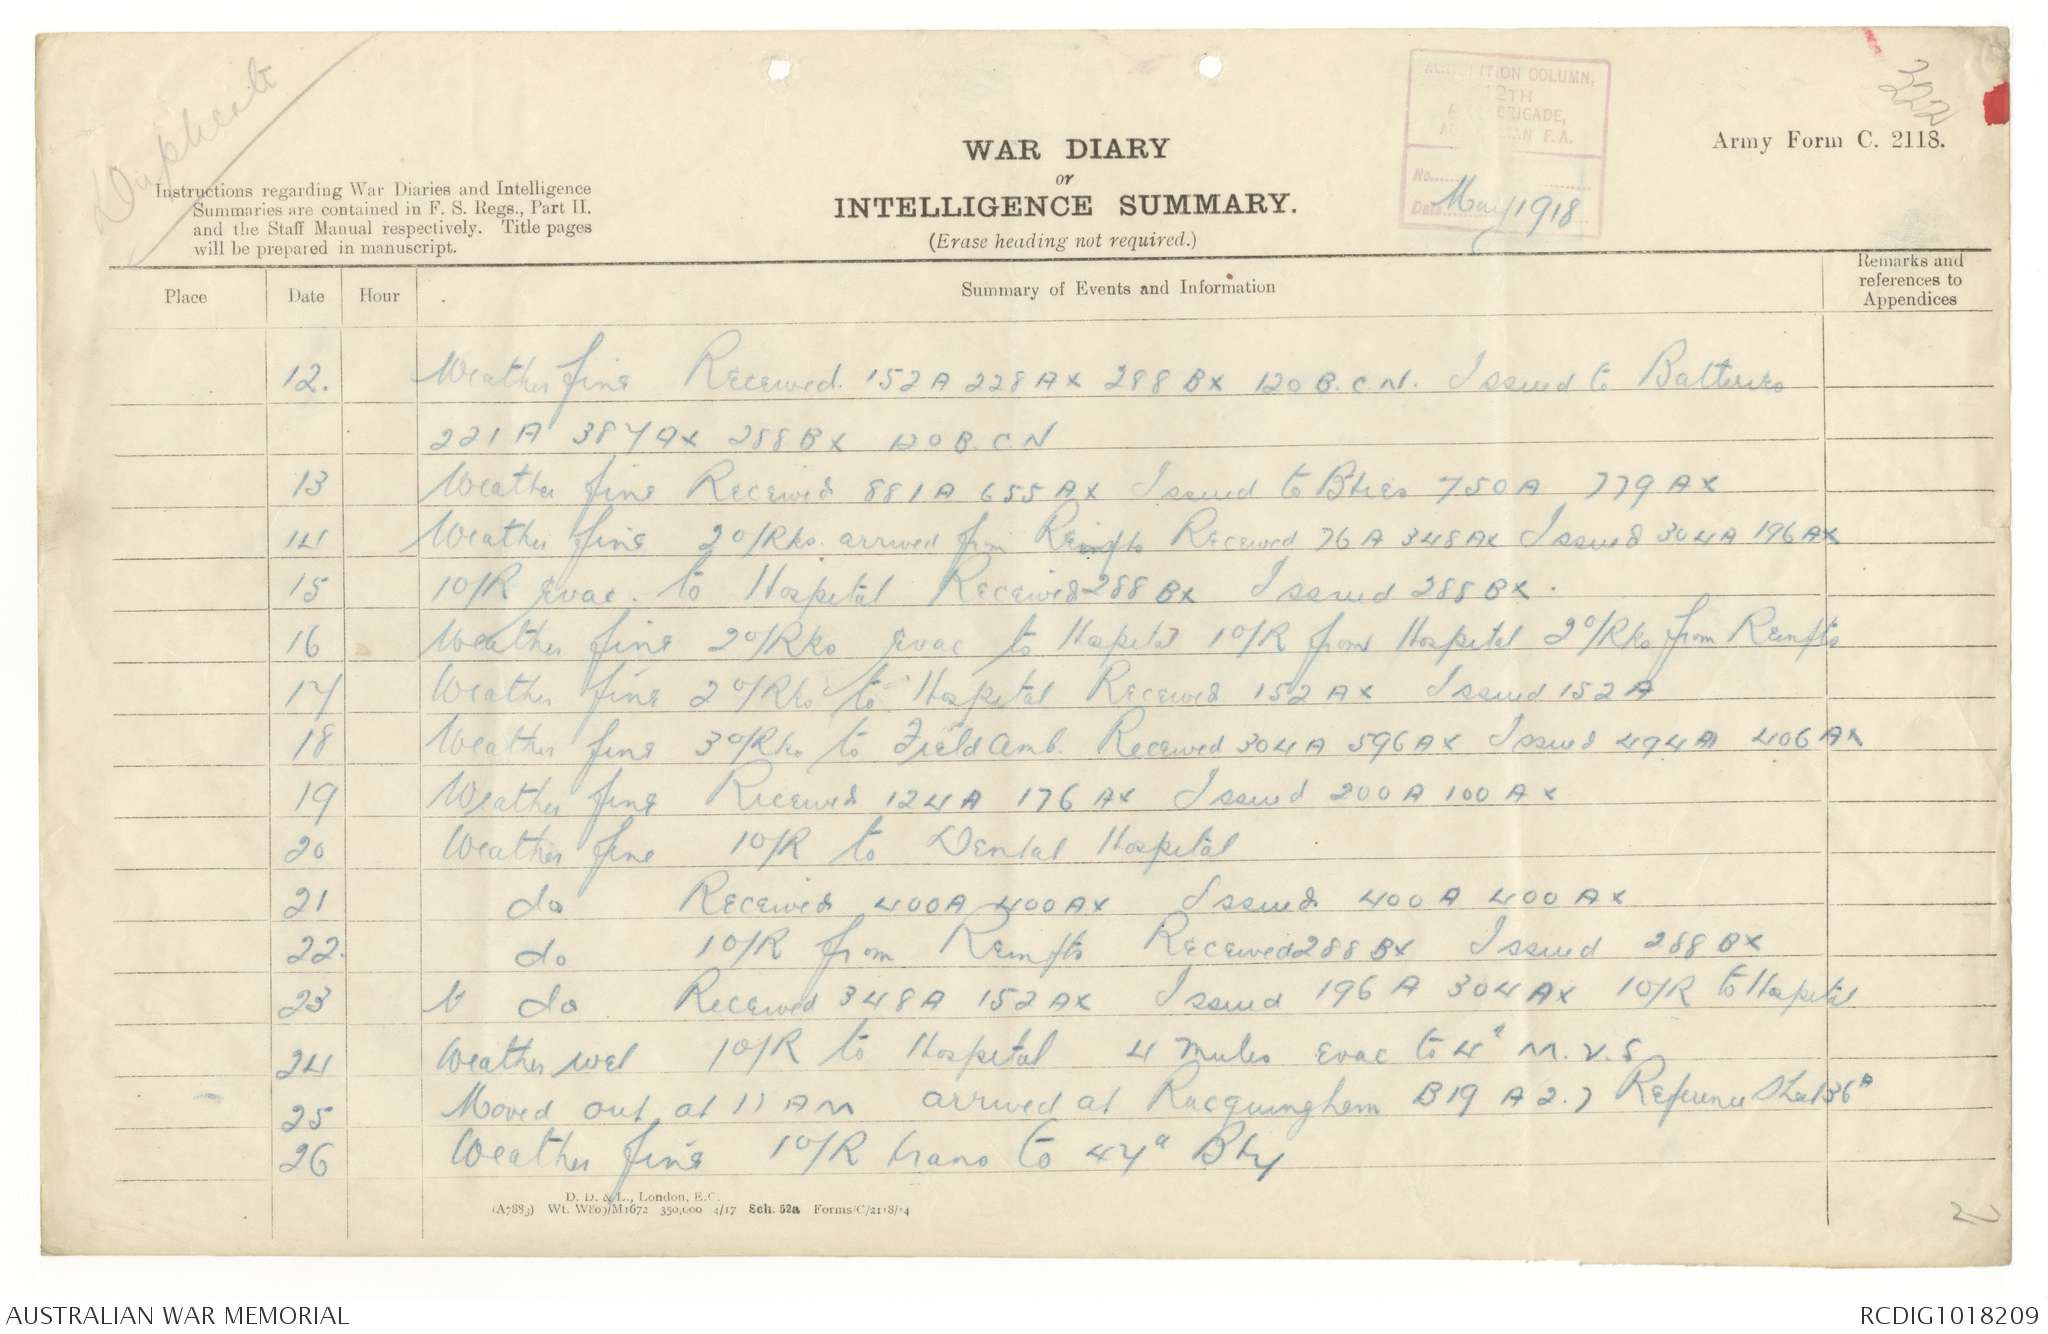 Duplicate
222
AMMUNITION COLUMN,
12TH
BRIGADE,
AUSTRALIAN F.A.
No.
Date May 1918
Army Form C. 2118.
WAR DIARY
or
INTELLIGENCE SUMMARY.
(Erase heading not required.)
Instructions regarding War Diaries and Intelligence
Summaries are contained in F. S. Regs., Part II.
and the Staff Manual respectively. Title pages
will be prepared in manuscript.
Place Date Hour Summary of Events and Information Remarks and references to Appendices
12. Weather fine Received. 152 A 228 AX 288 BX 120 B.C.N. Issued to Batteries
221 A 387 AX 288 BX 120 B.C.N
13 Weather fine Received 881 A 655 AX Issued to Btries 750 A 779 AX
14 Weather fine 2 O/Rks. arrived from Reinfts Received 76 A 348 AX Issued 304 A 196 AX
15 1 O/R evac. to Hospital Received 288 BX Issued 288 BX.
16 Weather fine 2 O/Rks evac to Hospital 1 O/R from Hospital 2 O/Rks from Reinfts
17 Weather fine 2 O/Rks to Hospital Received 152 AX Issued 152 A
18 Weather fine 3 O/Rks to Field Amb. Received 304 A 596 AX Issued 494 A 406 AX
19 Weather fine Received 124 A 176 AX Issued 200 A 100 AX
20 Weather fine 1 O/R to Dental Hospital
21 do Received 400 A 400 AX Issued 400 A 400 AX
22. do 1 O/R from Reinfts Received 288 BX Issued 288 BX
23 do Received 348 A 152 AX Issued 196 A 304 AX 1 O/R to Hospital
24 Weather wet 1 O/R to Hospital 4 Mules evac to 4a M.V.S
25 Moved out at 11 AM arrived at Racquinghem B19 A 2.7 Reference Sheet 36A
26 Weather fine 1 O/R trans to 47a Bty
D. D. & L., London, E.C.
(A7883) Wt. W809/M1672 350,000 4/17 Sch. 52a Forms/C/2118/14
AUSTRALIAN WAR MEMORIAL
RCDIG1018209